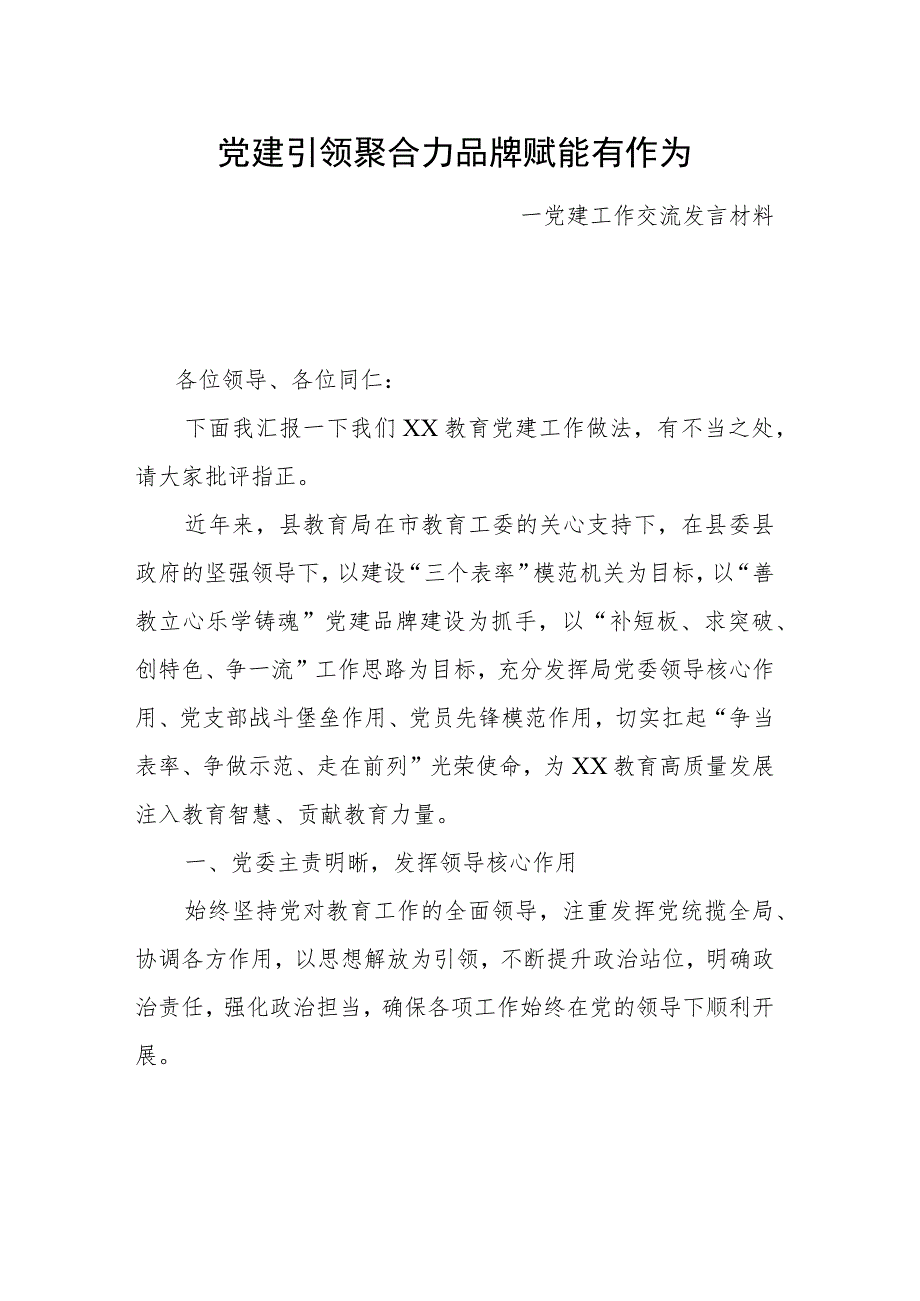 党建引领聚合力品牌赋能有作为
一党建工作交流发言材料
各位领导、各位同仁：
下面我汇报一下我们 XX 教育党建工作做法，有不当之处，
请大家批评指正。
近年来，县教育局在市教育工委的关心支持下，在县委县
政府的坚强领导下，以建设“三个表率”模范机关为目标，以“善
教立心乐学铸魂”党建品牌建设为抓手，以“补短板、求突破、
创特色、争一流”工作思路为目标，充分发挥局党委领导核心作
用、党支部战斗堡垒作用、党员先锋模范作用，切实扛起“争当
表率、争做示范、走在前列”光荣使命，为 XX 教育高质量发展
注入教育智慧、贡献教育力量。
一、党委主责明晰，发挥领导核心作用
始终坚持党对教育工作的全面领导，注重发挥党统揽全局、
协调各方作用，以思想解放为引领，不断提升政治站位，明确政
治责任，强化政治担当，确保各项工作始终在党的领导下顺利开
展。